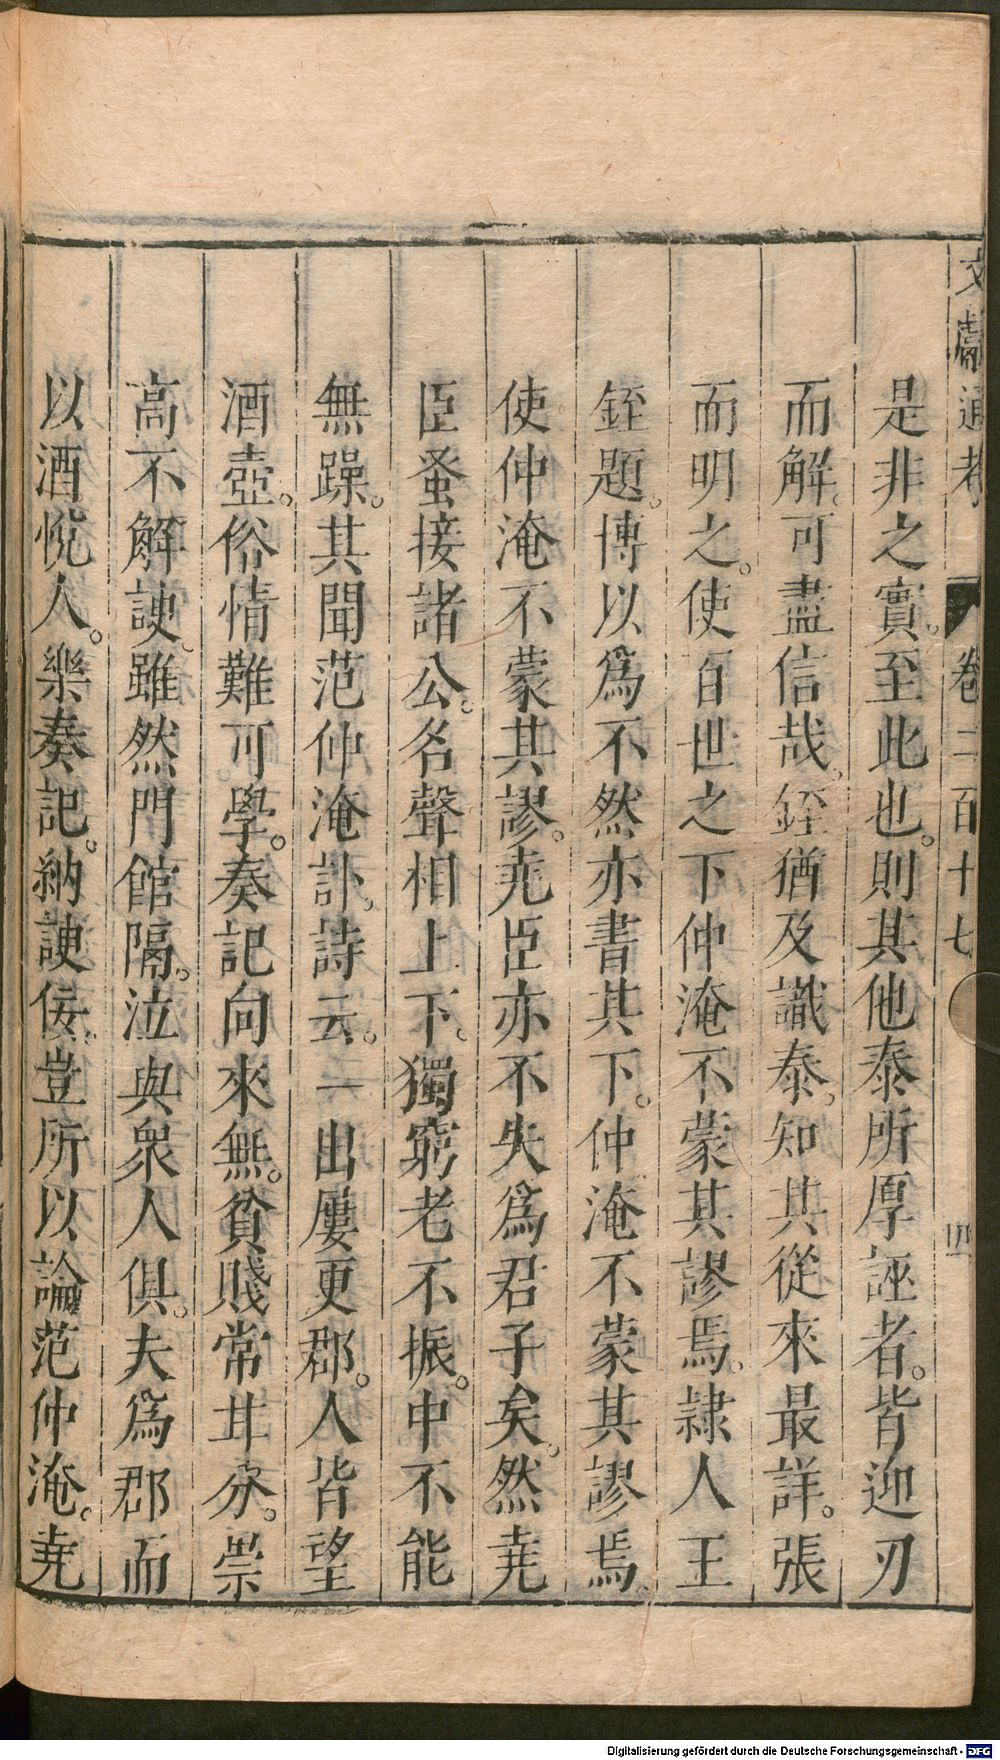 文獻通考 卷二百十七 四
是非之實。至此也。則其他泰所厚誣者。皆迎刃
而解。可盡信哉。銍猶及識泰。知其從來最詳。張
而明之。使百世之下仲淹不蒙其謬焉。隷人王
銍題。博以爲不然亦書其下。仲淹不蒙其謬焉。
使仲淹不蒙其謬。尭臣亦不失爲君子矣。然尭
臣蚤接諸公。名聲相上下。獨窮老不振。中不能
無躁。其聞范仲淹訃。詩云。一出屢更郡。人皆望
酒壺。俗情難可學。奏記向來無。貧賤常甘分。崇
高不解諛。雖然門館隔。泣與衆人俱。夫爲郡而
以酒悅人。樂奏記。納諛佞。豈所以論范仲淹。尭
Digitalisierung gefördert durch die Deutsche Forschungsgemeinschaft - DFG